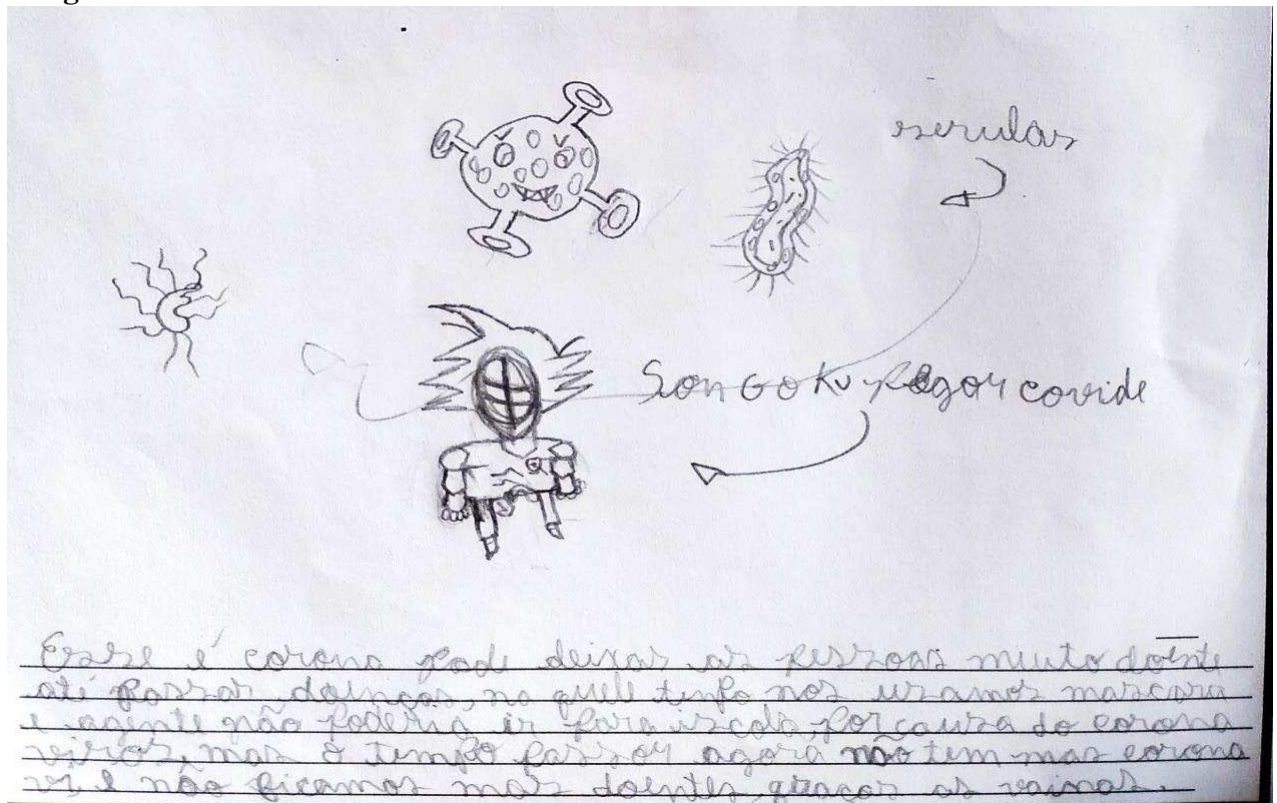 eserulas
Son Goku pegou covide
Esse é corona pode deixar as pessoas muuto doente
até passar doinças, na quele tenpo nos usamos mascara
e agente não poderia ir para iscola, por causa do corona
veiros, mas o tempo passou agora não tem mas corona
vz e não ficamos mas doentes, graças as vainas.